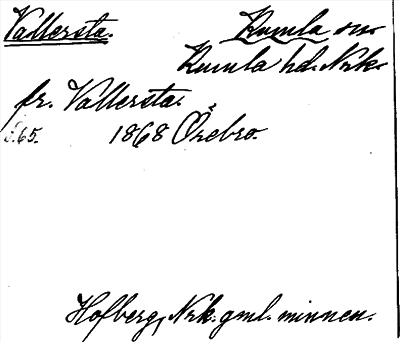 Vallersta. Kumla sn.
Kumla hd. Nrk.
fr. Vallersta.
S.65. 1868 Örebro.
Hofberg, Nrk. gml. minnen.